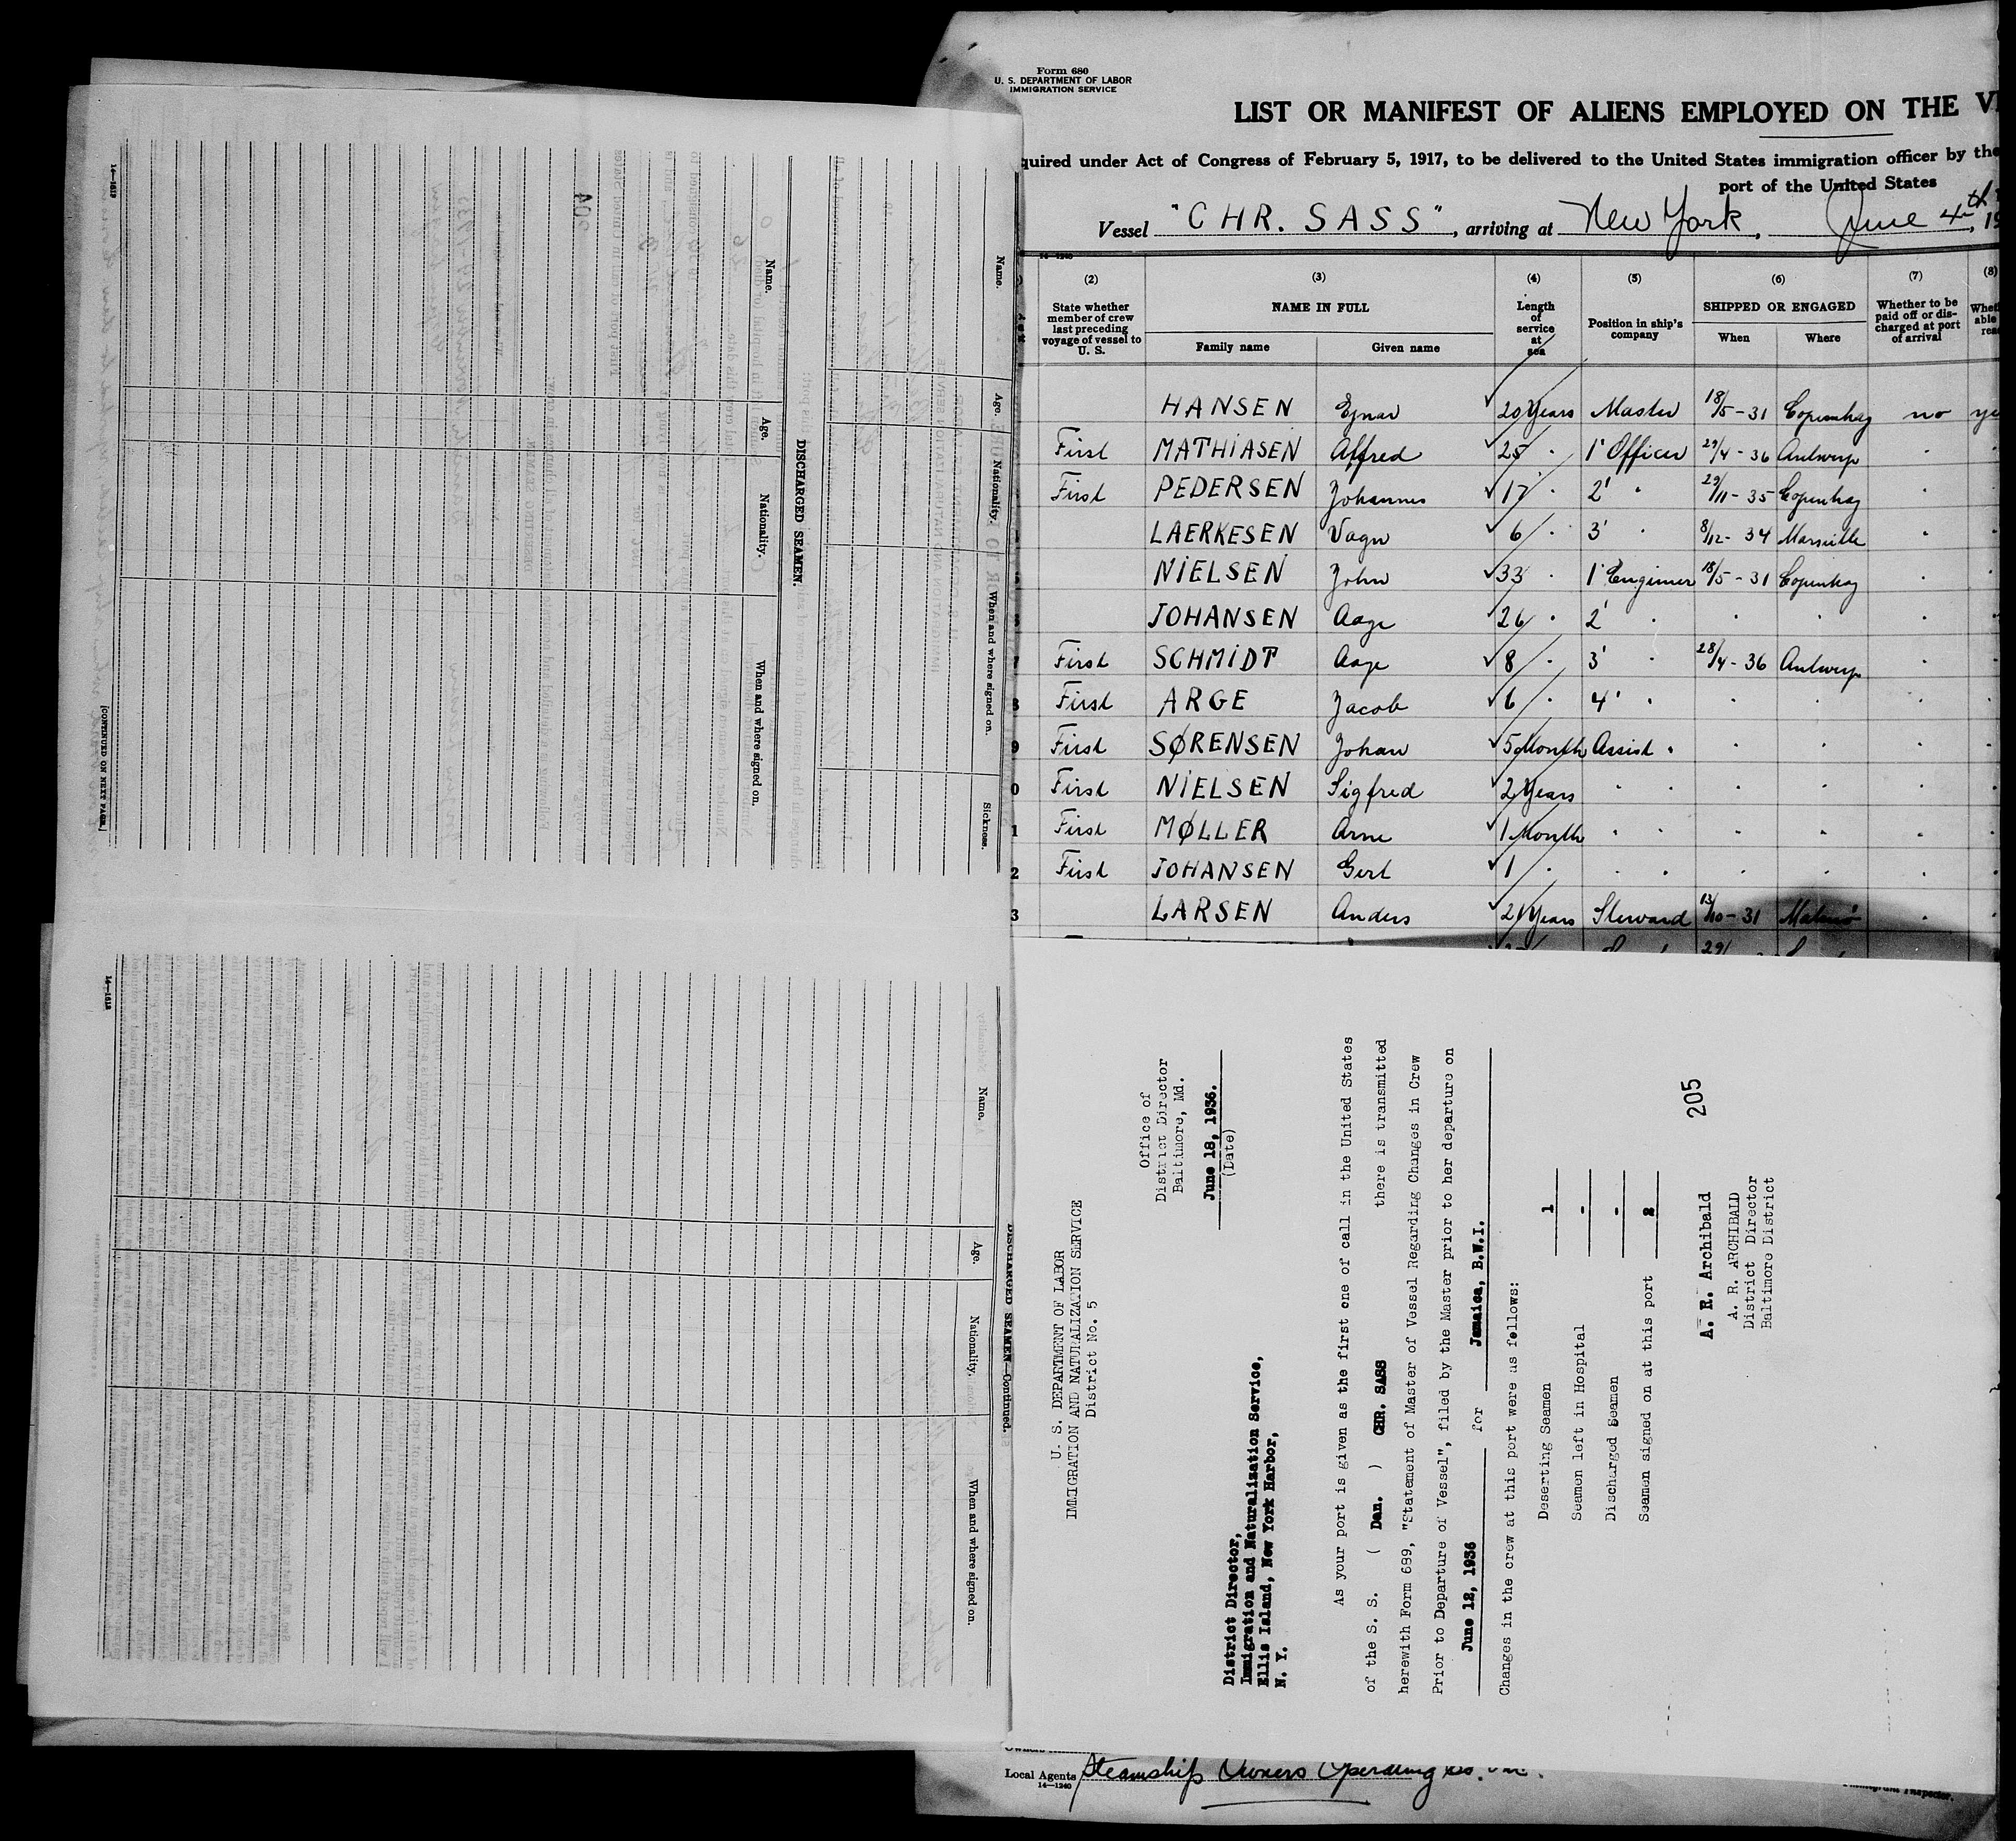 Form 680
U. S. DEPARTMENT OF LABOR
IMMIGRATION SERVICE
LIST OR MANIFEST OF ALIENS EMPLOYED ON THE
quired under Act of Congress of February 5, 1917, to be delivered to the United States immigration officer by the
port of the United States
Vessel "CHR. SASS", arriving at New York, June 4th, 19
14-1240
(2) (3) (4) (5) (6) (7) (8)
State whether member of crew last preceding voyage of vessel to U. S.
NAME IN FULL
Family name Given name
Length of service at sea
Position in ship's company
SHIPPED OR ENGAGED
When Where
Whether to be paid off or discharged at port of arrival
HANSEN Ejnar 20 Years Master 18/5-31 Copenhag no
First MATHIASEN Alfred 25 " 1' Officer 29/4-36 Antwerp "
First PEDERSEN Johannes 17 " 2' " 29/11-35 Copenhag "
LAERKESEN Vagn 6 " 3' " 8/12-34 Marseille "
NIELSEN John 33 " 1' Engineer 18/5-31 Copenhag "
JOHANSEN Aage 26 " 2' " " " "
7 First SCHMIDT Aage 8 " 3' " 28/4-36 Antwerp "
8 First ARGE Jacob 6 " 4' " " " "
9 First SØRENSEN Johan 5 Month Assist " " " "
0 First NIELSEN Sigfred 2 Years " " " " "
1 First MØLLER Arne 1 Month " " " " "
2 First JOHANSEN Gert 1 " " " " " "
3 LARSEN Anders 21 Years Steward 13/10-31 Malmö "
Local Agents Steamship Owners Operating Co. Inc.
14-1240
U. S. DEPARTMENT OF LABOR
IMMIGRATION AND NATURALIZATION SERVICE
District No. 5
Office of
District Director
Baltimore, Md.
June 18, 1936.
(Date)
District Director,
Immigration and Naturalization Service,
Ellis Island, New York Harbor,
N. Y.
As your port is given as the first one of call in the United States
of the S. S. ( Dan. ) CHR. SASS there is transmitted
herewith Form 689, "Statement of Master of Vessel Regarding Changes in Crew
Prior to Departure of Vessel", filed by the Master prior to her departure on
June 12, 1936 for Jamaica, B.W.I.
Changes in the crew at this port were as follows:
Deserting Seamen 1
Seamen left in Hospital -
Discharged Seamen -
Seamen signed on at this port 2
A. R. Archibald
A. R. ARCHIBALD
District Director
Baltimore District
205
Name. Age. Nationality. When and where signed on. Sickness.
DISCHARGED SEAMEN.
Name. Age. Nationality. When and where signed on.
[CONTINUED ON NEXT PAGE.]
14-1619
DISCHARGED SEAMEN—Continued.
Name. Age. Nationality. When and where signed on.
14-1619